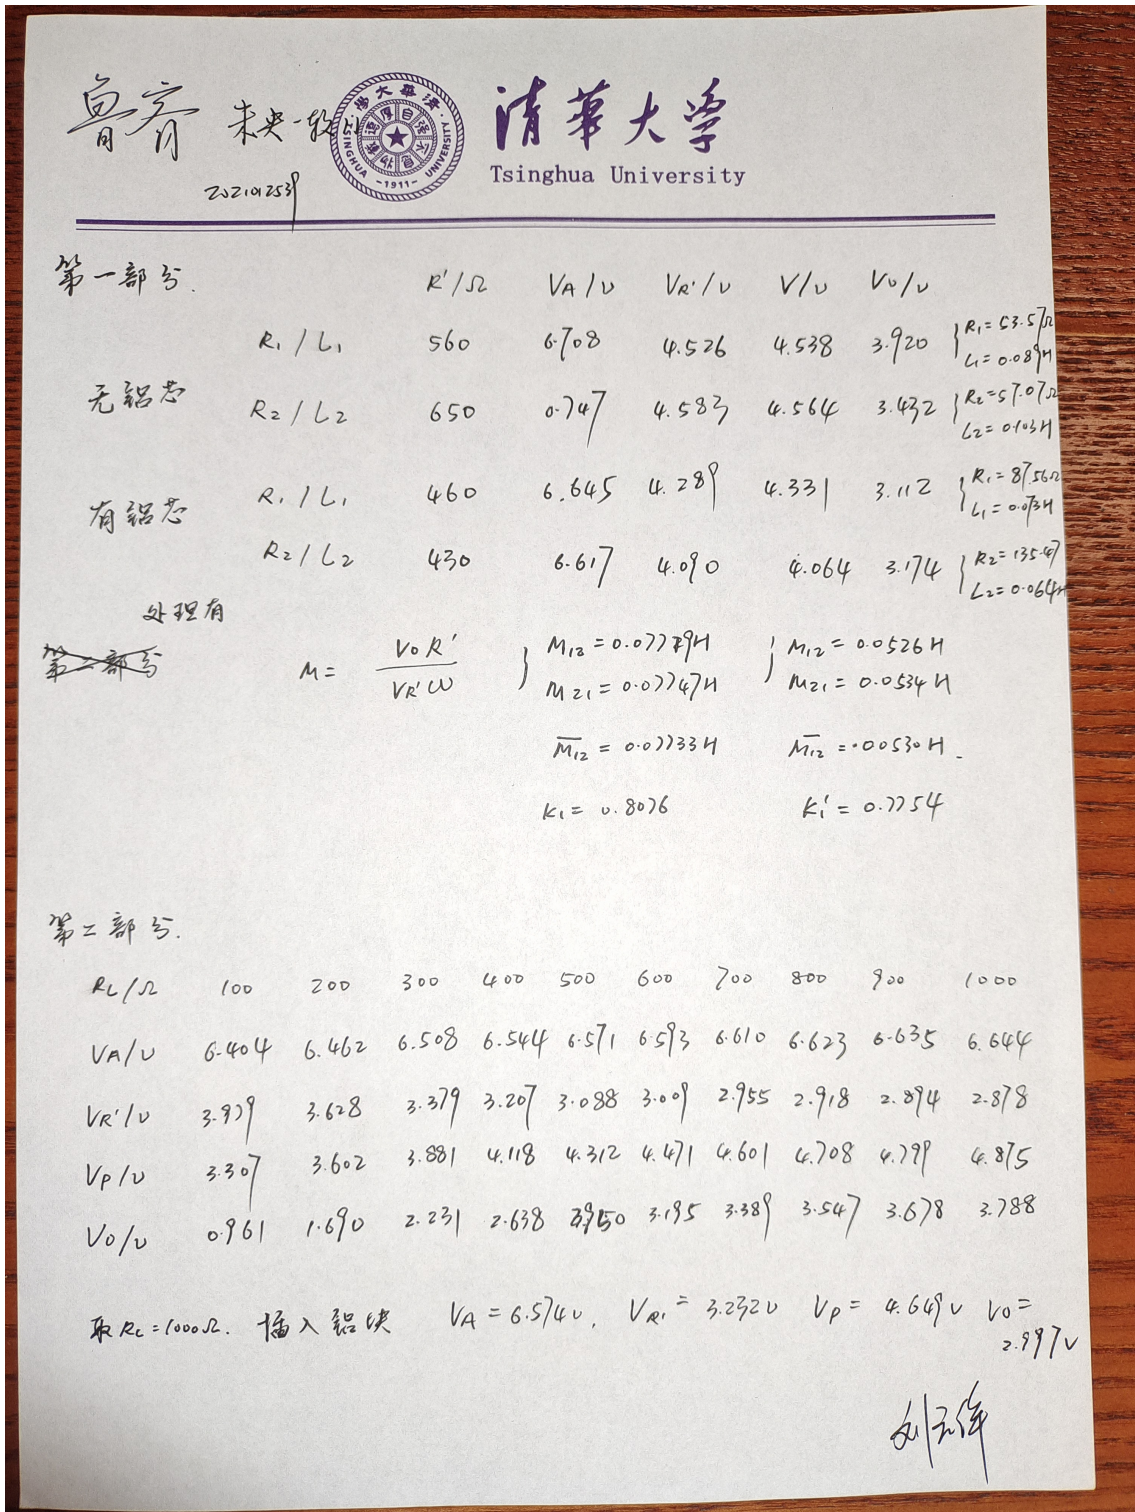 鲁齐 未央-软12 清华大学
Tsinghua University
2021012539
TSINGHUA UNIVERSITY
-1911-
第一部分.
R'/Ω VA/V VR'/V V/V V0/V
R1/L1 560 6.708 4.526 4.538 3.920 R1=53.57Ω
L1=0.089H
无铝芯
R2/L2 650 0.747 4.583 4.564 3.432 R2=57.07Ω
L2=0.103H
有铝芯
R1/L1 460 6.645 4.289 4.331 3.112 R1=87.56Ω
L1=0.073H
R2/L2 430 6.617 4.090 4.064 3.174 R2=135.47
L2=0.064H
处理有
第二部分
M= V0R'/VR'ω M12=0.07719H M12=0.0526H
M21=0.07747H M21=0.0534H
M12=0.07733H M12=0.0530H.
K1=0.8076 K1'=0.7754
第二部分.
RL/Ω 100 200 300 400 500 600 700 800 900 1000
VA/V 6.404 6.462 6.508 6.544 6.571 6.593 6.610 6.623 6.635 6.644
VR'/V 3.979 3.628 3.379 3.207 3.088 3.009 2.955 2.918 2.894 2.878
VP/V 3.307 3.602 3.881 4.118 4.312 4.471 4.601 4.708 4.799 4.875
V0/V 0.961 1.690 2.231 2.638 2.950 3.195 3.389 3.547 3.678 3.788
取RL=1000Ω. 插入铝块 VA=6.574V, VR'=3.232V VP=4.649V V0=
2.997V